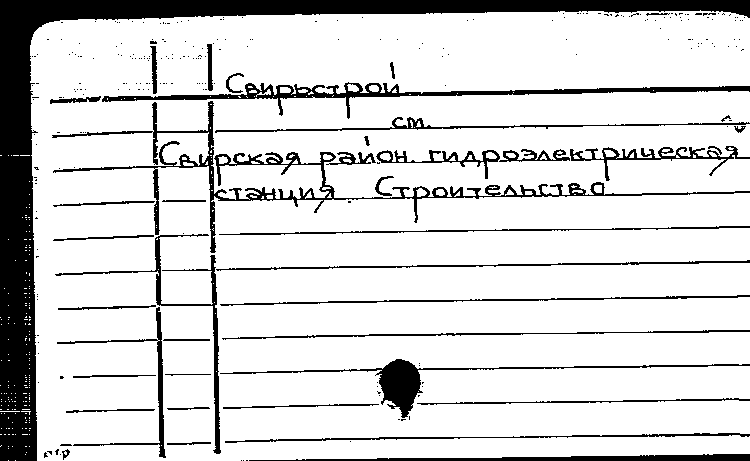 Свирьстрой
см.
Свирская район. гидроэлектрическая
станция. Строительство.